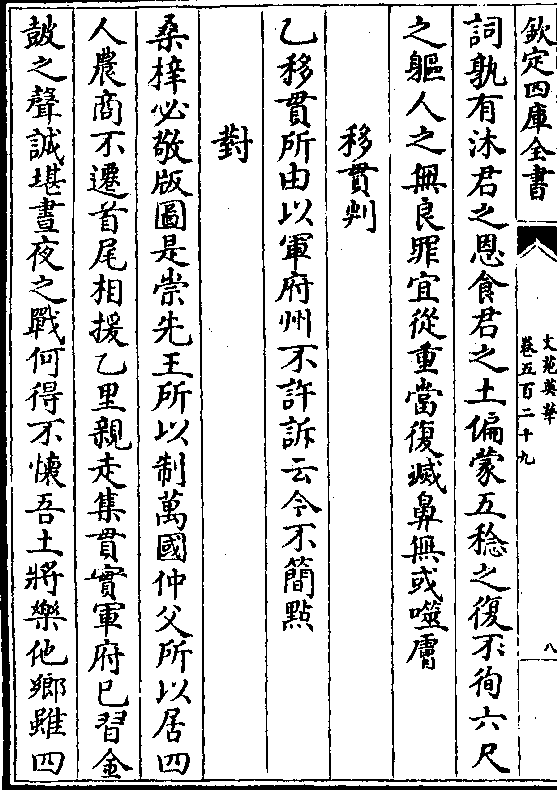 欽定四庫全書
文苑英華
卷五百二十九
八
詞孰有沐君之恩食君之土偏蒙五稔之復不徇六尺
之軀人之無良罪宜從重當復滅鼻無或噬膚
移貫判
乙移貫所由以軍府州不許訴云令不簡點
對
桑梓必敬版圖是崇先王所以制萬國仲父所以居四
人農商不遷首尾相援乙里親走集貫實軍府已習金
鼓之聲誠堪晝夜之戰何得不懷吾土將樂他鄉雖四